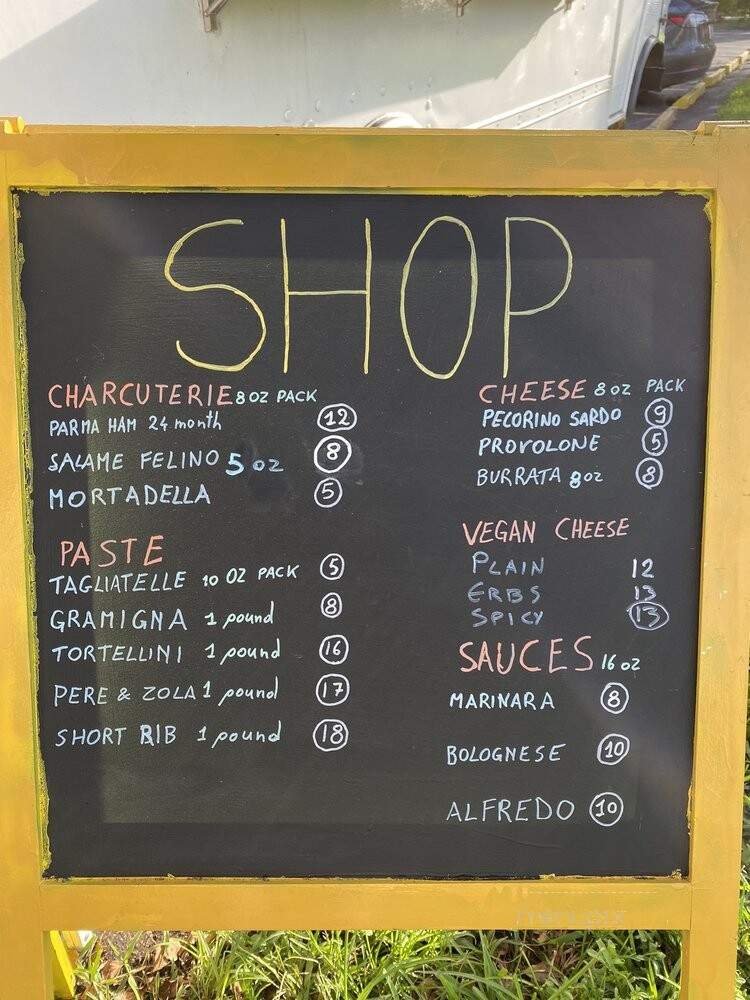 SHOP
CHARCUTERIE 8 OZ PACK
PARMA HAM 24 month 12
SALAME FELINO 5 oz 8
MORTADELLA 5
PASTE
TAGLIATELLE 10 OZ PACK 5
GRAMIGNA 1 pound 8
TORTELLINI 1 pound 16
PERE & ZOLA 1 pound 17
SHORT RIB 1 pound 18
CHEESE 8 OZ PACK
PECORINO SARDO 9
PROVOLONE 5
BURRATA 8 oz 8
VEGAN CHEESE
PLAIN 12
ERBS 13
SPICY 13
SAUCES 16 oz
MARINARA 8
BOLOGNESE 10
ALFREDO 10